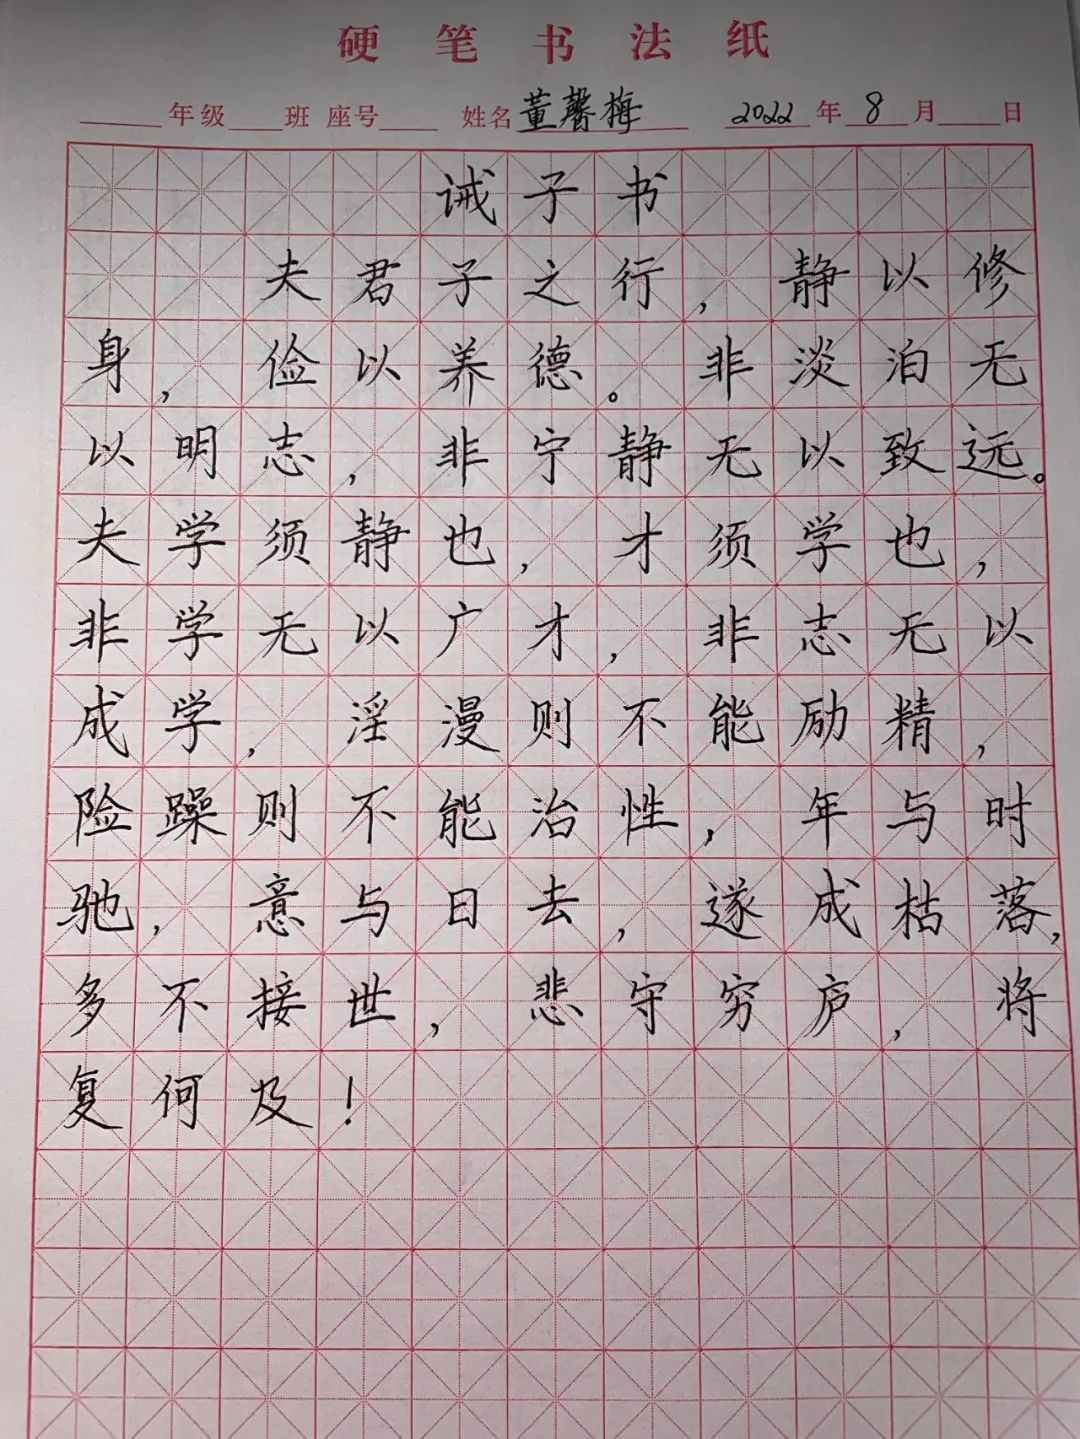 硬笔书法纸
年级 班 座号 姓名董馨梅 2022年8月 日
诫子书
夫君子之行，静以修
身，俭以养德。非淡泊无
以明志，非宁静无以致远。
夫学须静也，才须学也，
非学无以广才，非志无以
成学，淫漫则不能励精，
险躁则不能治性，年与时
驰，意与日去，遂成枯落，
多不接世，悲守穷庐，将
复何及！